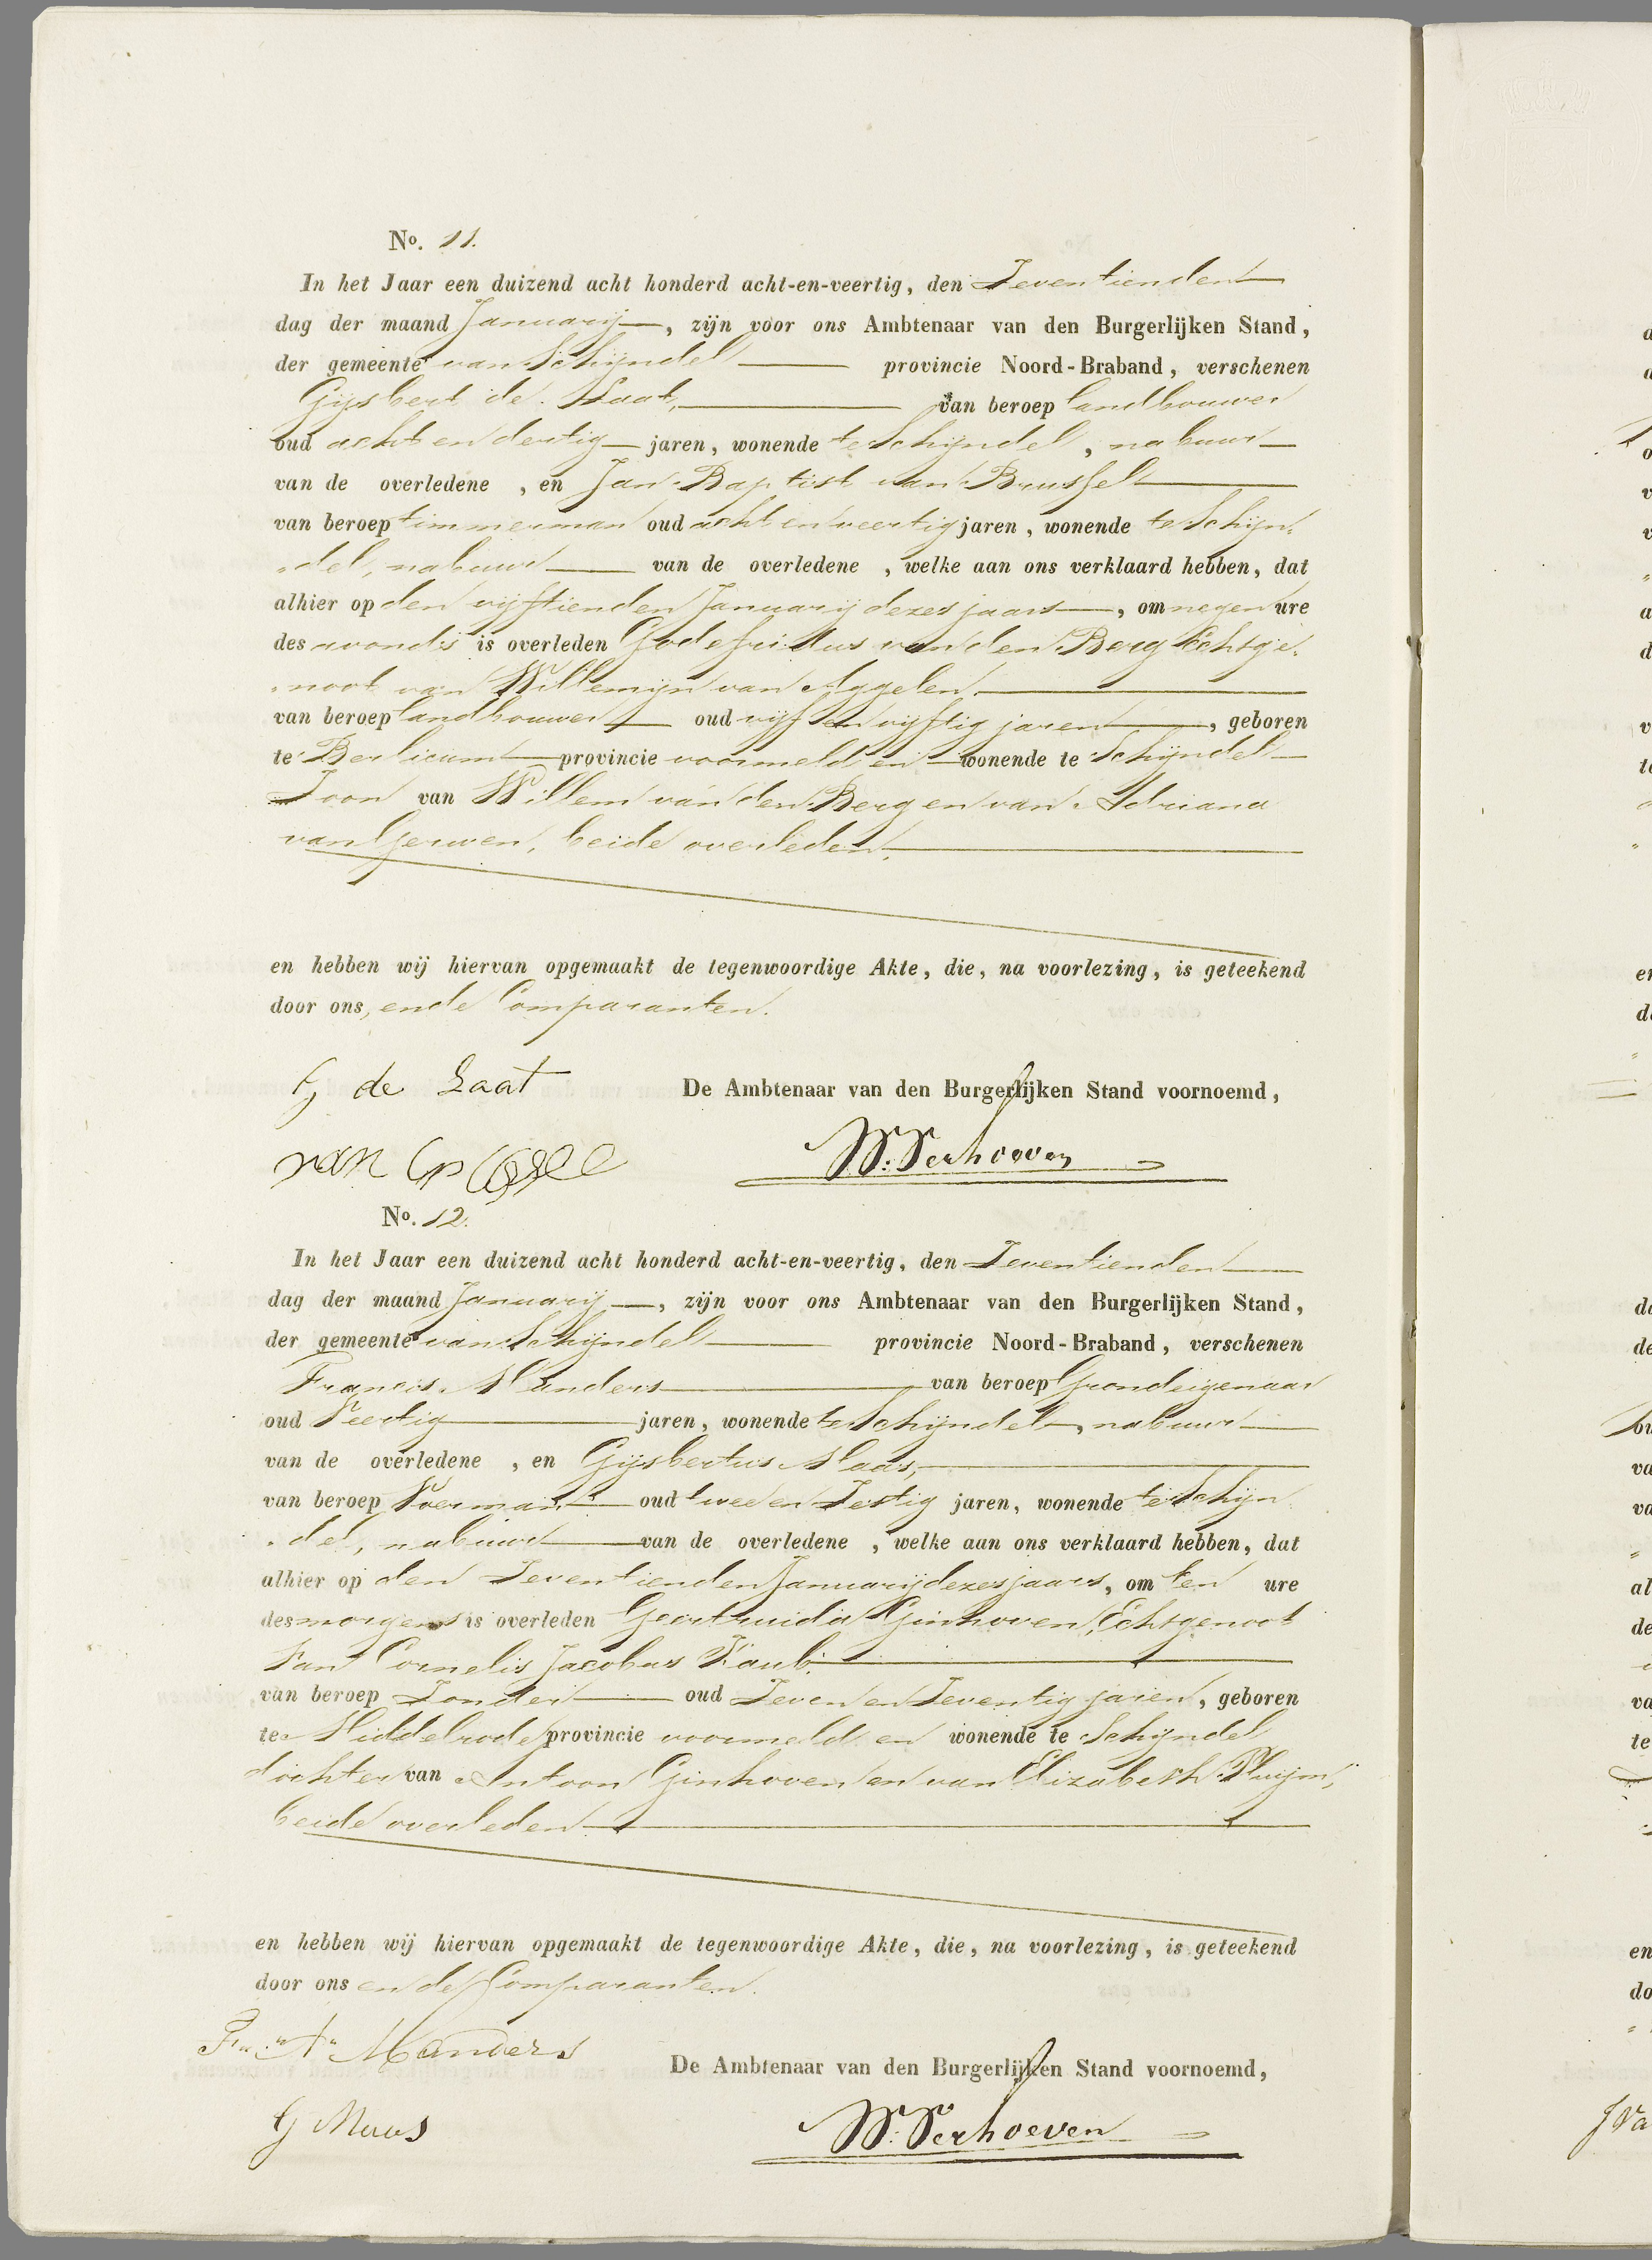 No. 11.
In het Jaar een duizend acht honderd acht-en-veertig, den Zeventienden
dag der maand Januarij, zijn voor ons Ambtenaar van den Burgerlijken Stand,
der gemeente van Schijndel provincie Noord-Braband, verschenen
Gijsbert de Laat, van beroep landbouwer
oud acht en dertig jaren, wonende te Schijndel, nabuur
van de overledene, en Jan Baptist van Brussel
van beroep timmerman oud acht en veertig jaren, wonende te Schijn-
-del, nabuur van de overledene, welke aan ons verklaard hebben, dat
alhier op den vijftienden Januarij dezes jaars, om negen ure
des avonds is overleden Godefridus van den Berg Echtge-
-noot van Willemijn van Aggelen
van beroep landbouwer oud vijf en vijftig jaren, geboren
te Berlicum provincie voormeld en wonende te Schijndel
Zoon van Willem van den Berg en van Adriana
van Gerwen, beide overleden,
en hebben wij hiervan opgemaakt de tegenwoordige Akte, die, na voorlezing, is geteekend
door ons, en de Comparanten.
G de Laat De Ambtenaar van den Burgerlijken Stand voornoemd,
van W. Verhoeven
No. 12.
In het Jaar een duizend acht honderd acht-en-veertig, den Zeventienden
dag der maand Januarij, zijn voor ons Ambtenaar van den Burgerlijken Stand,
der gemeente van Schijndel provincie Noord-Braband, verschenen
Francis Manders van beroep Grondeigenaar
oud Veertig jaren, wonende te Schijndel, nabuur
van de overledene, en Gijsbertus Maas,
van beroep Voerman oud twee en Zestig jaren, wonende te Schijn
-del, nabuur van de overledene, welke aan ons verklaard hebben, dat
alhier op den Zeventienden Januarij dezes jaars, om tien ure
des morgens is overleden Geertruida Ginhoven, Echtgenoot
van Cornelis Jacobus
van beroep Zonder oud Zeven en Zeventig jaren, geboren
te Middelrode provincie voormeld en wonende te Schijndel
dochter van Antoon Ginhoven en van Elizabeth Pluijm,
beide overleden
en hebben wij hiervan opgemaakt de tegenwoordige Akte, die, na voorlezing, is geteekend
door ons en de Comparanten.
Manders De Ambtenaar van den Burgerlijken Stand voornoemd,
G Maas W. Verhoeven